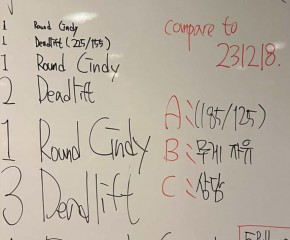 1 Round Cindy
1 Deadlift (225/155)
1 Round Cindy
2 Deadlift
1 Round Cindy
3 Deadlift
compare to
231218.
A: (185/125)
B: 무게 자유
C: 상담